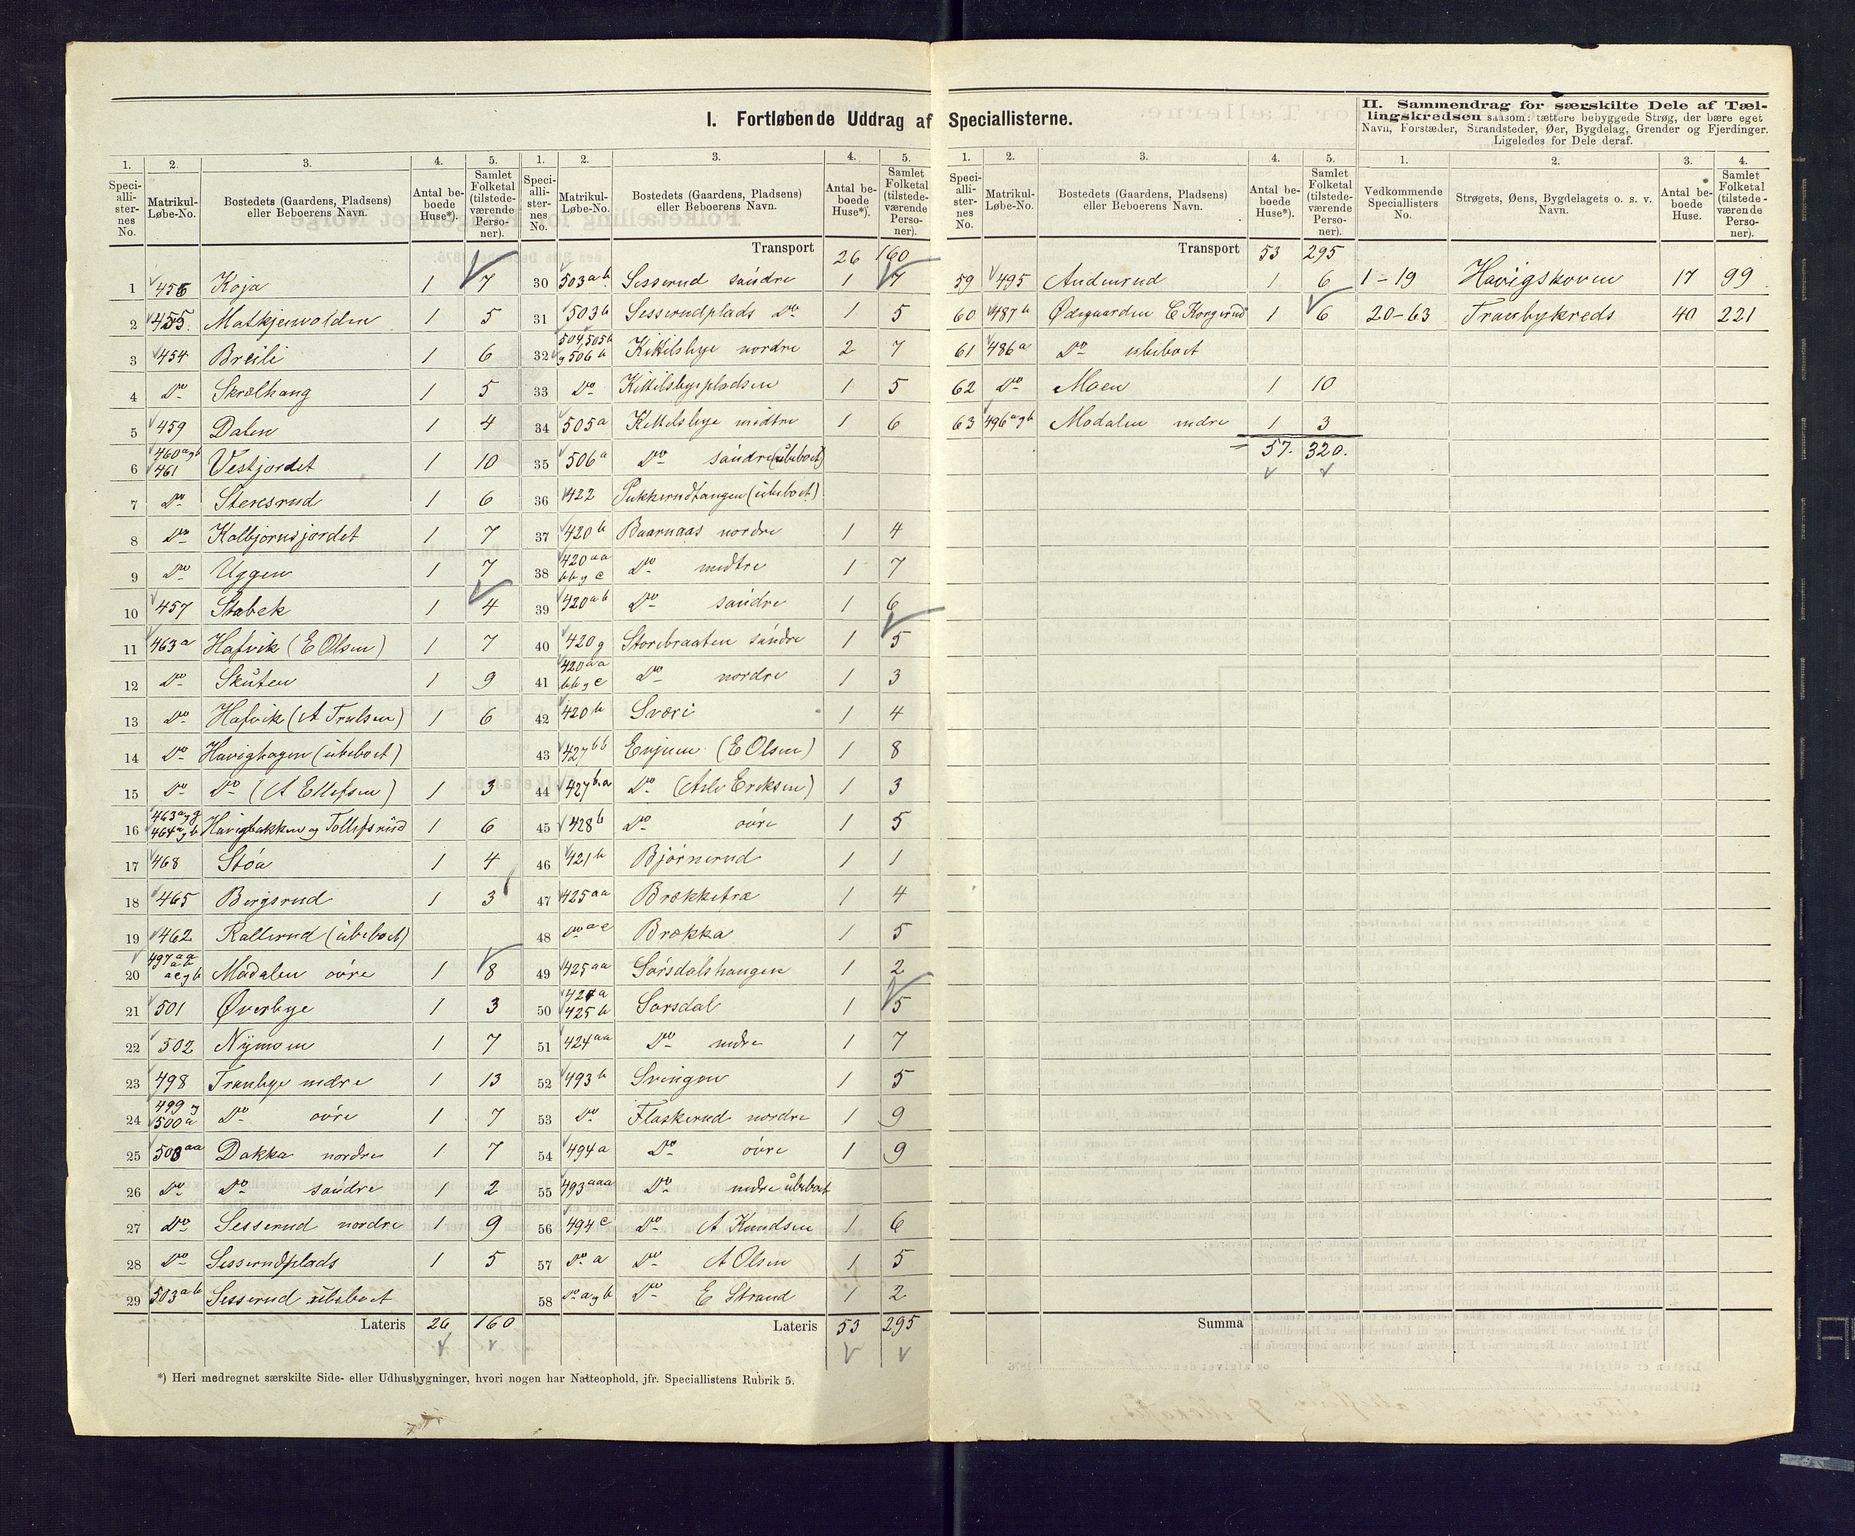 I. Fortløbende Uddrag af Speciallisterne.
II. Sammendrag for særskilte Dele af Tæl-
lingskredsen saasom: tættere bebyggede Strøg, der bære eget
Navn, Forstæder, Strandsteder, Øer, Bygdelag, Grender og Fjerdinger.
Ligeledes for Dele deraf.
1. 2. 3. 4. 5. 1. 2. 3. 4. 5. 1. 2. 3. 4. 5. 1. 2. 3. 4.
Speciallisternes No. Matrikul-Løbe-No. Bostedets (Gaardens, Pladsens) eller Beboerens Navn. Antal beboede Huse*). Samlet Folketal (tilstedeværende Personer).
Speciallisternes No. Matrikul-Løbe-No. Bostedets (Gaardens, Pladsens) eller Beboerens Navn. Antal beboede Huse*). Samlet Folketal (tilstedeværende Personer).
Speciallisternes No. Matrikul-Løbe-No. Bostedets (Gaardens, Pladsens) eller Beboerens Navn. Antal beboede Huse*). Samlet Folketal (tilstedeværende Personer).
Vedkommende Speciallisters No. Strøgets, Øens, Bygdelagets o. s. v. Navn. Antal beboede Huse. Samlet Folketal (tilstedeværende Personer).
1 456 Koja 1 7
2 455 Matkjenvolden 1 5
3 454 Breili 1 6
4 Do Skrælhang 1 5
5 459 Dalen 1 4
6 460 a g b 461 Vestjordet 1 10
7 Do Steresrud 1 6
8 Do Kolbjørnsjordet 1 7
9 Do Uggen 1 7
10 457 Stabek 1 4
11 463a Hafvik (E Olsen) 1 7
12 Do Skuten 1 9
13 Do Hafvik (A Trulsen) 1 6
14 Do Havighagen (ubeboet)
15 Do Do (A Ellefsen) 1 3
16 463 a g g 464 a g b Havigbakken og Tollefsrud 1 6
17 468 Støa 1 4
18 465 Bergsrud 1 3
19 462 Kallerud (ubeboet)
20 497 aa ab ac g b Modalen øvre 1 8
21 501 Øverbye 1 3
22 502 Nymoen 1 7
23 498 Tranbye nedre 1 13
24 499 g 500a Do øvre 1 7
25 503 aa Dakka nordre 1 7
26 Do Do søndre 1 2
27 Do Sesserud nordre 1 9
28 Do Sesserudplads 1 5
29 503 a b Sesserud ubeboet
Lateris 26 160
Transport 26 160
30 503 a b Sesserud søndre 1 7
31 503 b Sesserudplads Do 1 5
32 504, 505b g 506b Kittelsbye nordre 2 7
33 Do Kittelsbyepladsen 1 5
34 505a Kittelsbye midtre 1 6
35 506a Do søndre (ubeboet)
36 422 Pukkerudtangen (ubeboet)
37 420 b Baarnaas nordre 1 4
38 420 aa bb g c Do midtre 1 7
39 420 a b Do søndre 1 6
40 420 g Storebraaten søndre 1 5
41 420 aa bb g c Do nordre 1 3
42 420 b Sværi 1 4
43 427 bb Enjum (E Olsen) 1 8
44 427 b.a Do (Asle Eriksen) 1 3
45 428 b Do øvre 1 5
46 421 b Bjørnerud 1 1
47 425 aa Brækketræ 1 4
48 Do ac Brækka 1 5
49 425 aa Sørsdalshaugen 1 2
50 424 a 425 b Sørsdal 1 5
51 424 aa Do nedre 1 7
52 493 b Svingen 1 5
53 Do Flaskerud nordre 1 9
54 494 a Do øvre 1 9
55 493 aaa Do nedre ubeboet
56 494 c Do A Knudsen 1 6
57 Do a Do A Olsen 1 5
58 Do a g b Do E Strand 1 2
Lateris 53 295
Transport 53 295
59 495 Anderud 1 6
60 487 b Ødegaarden E Kongerud 1 6
61 486 a Do ubeboet
62 Do Moen 1 10
63 496 a g b Modalen nedre 1 3
57. 320.
Summa
1-19 Havigskoven 17 99
20-63 Tranbykreds 40 221
*) Heri medregnet særskilte Side- eller Udhusbygninger, hvori nogen har Natteophold, jfr. Speciallistens Rubrik 5.